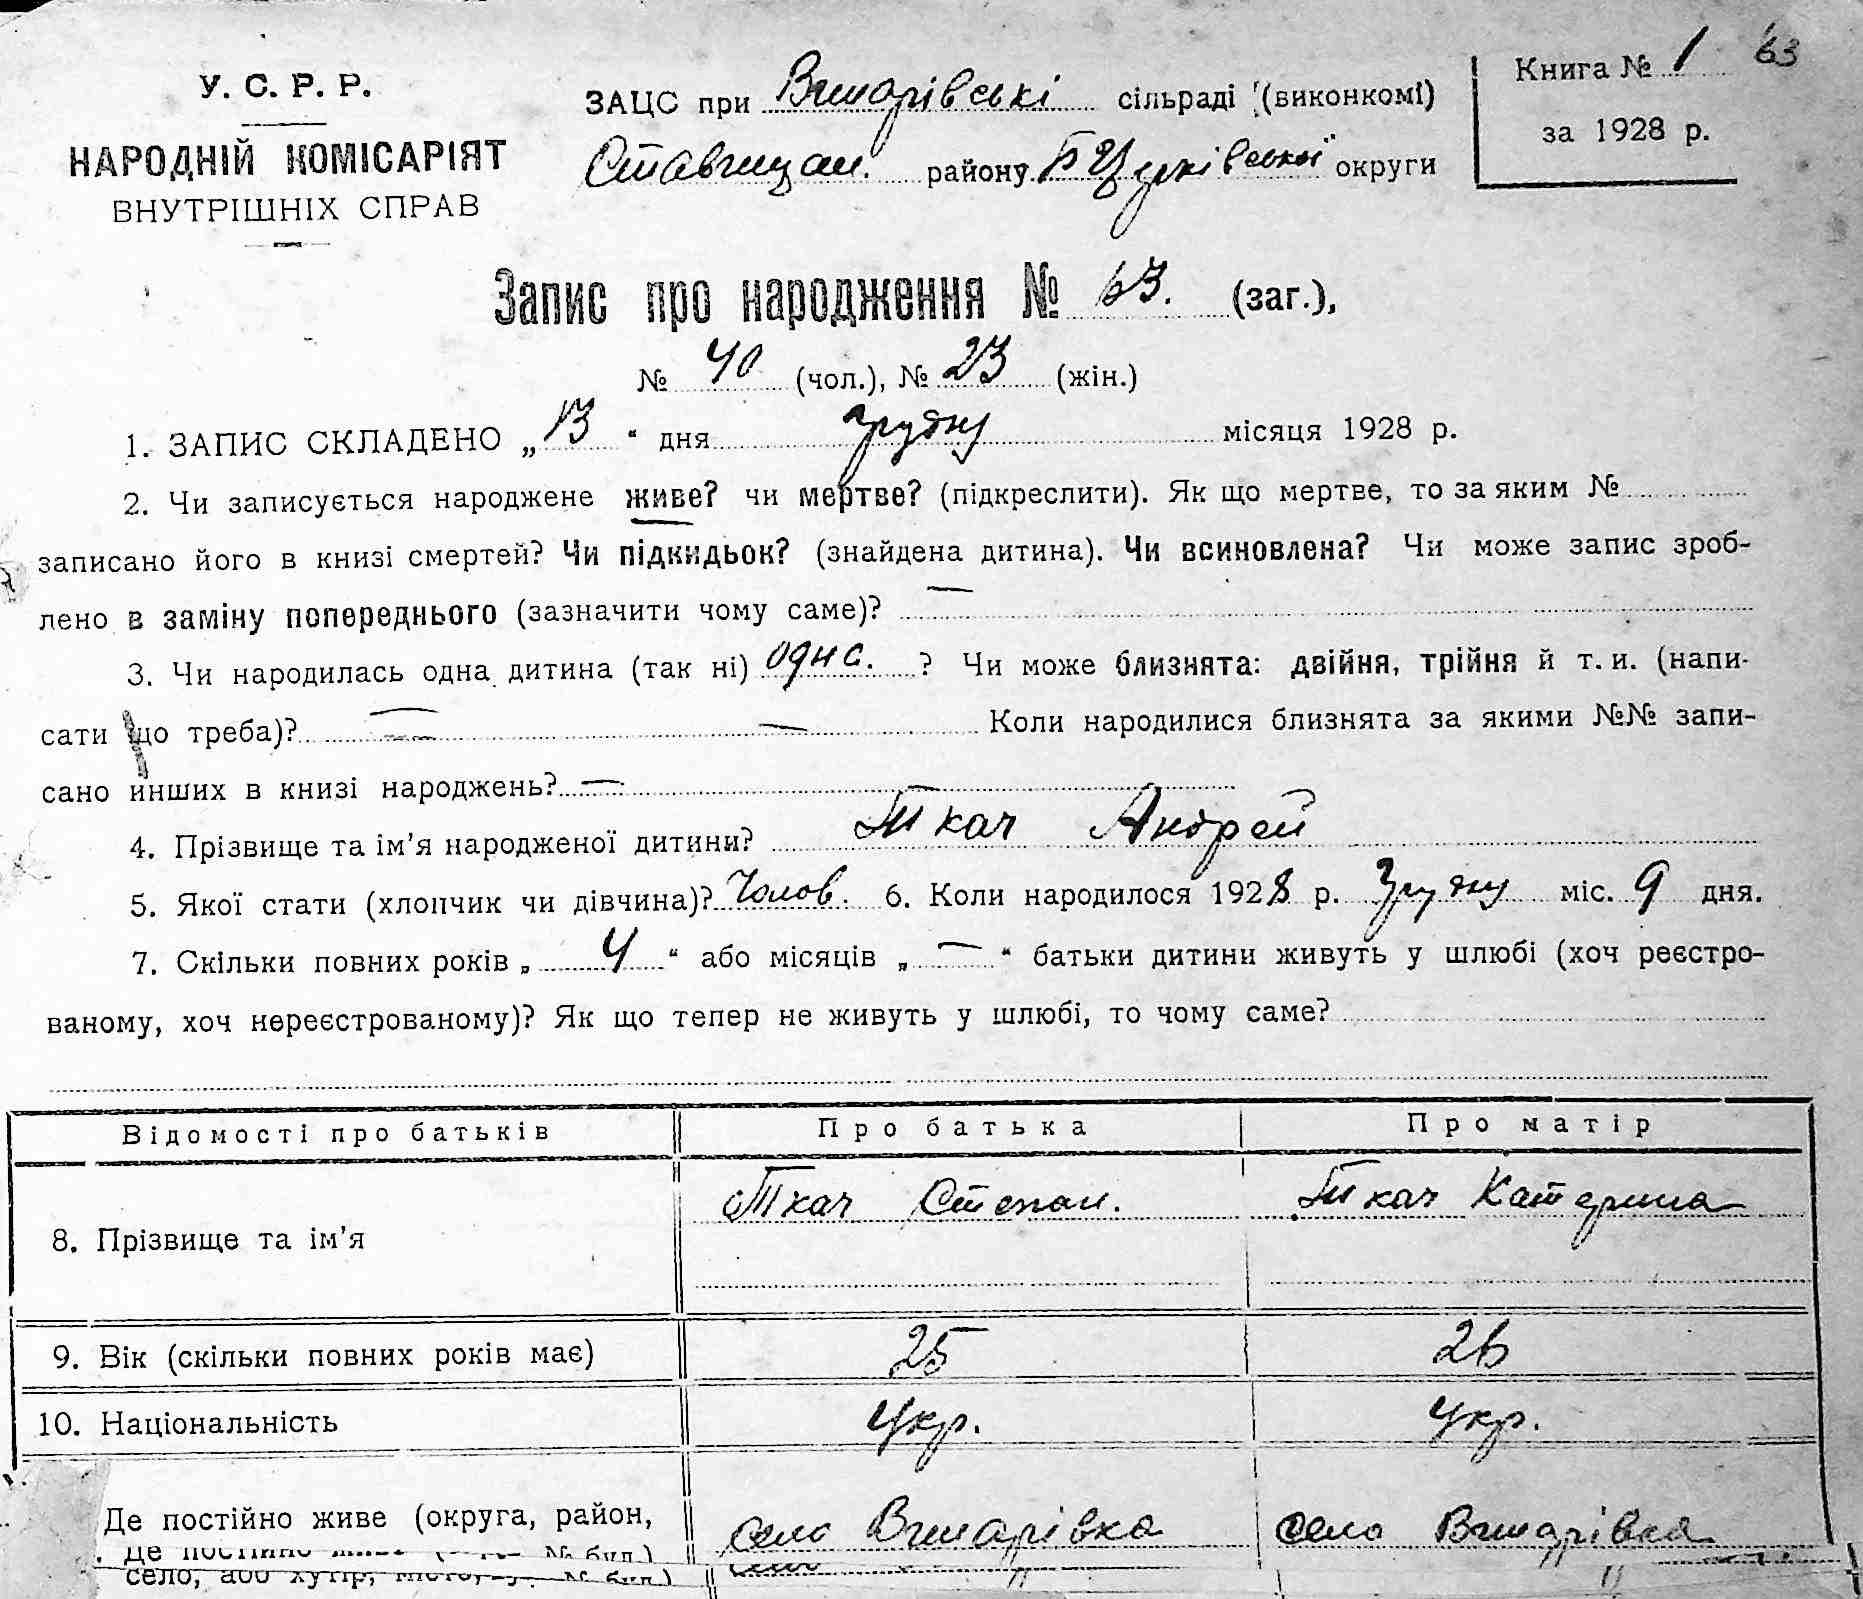 У. С. Р. Р.
НАРОДНІЙ КОМІСАРІЯТ
ВНУТРІШНІХ СПРАВ
ЗАЦС при сільраді (виконкомі)
району Б Церківської округи
Книга № 1 63
за 1928 р.
Запис про народження № 63. (заг.),
№ 40 (чол.), № 23 (жін.)
1. ЗАПИС СКЛАДЕНО „13“ дня грудну місяця 1928 р.
2. Чи записується народжене живе? чи мертве? (підкреслити). Як що мертве, то за яким №
записано його в книзі смертей? Чи підкидьок? (знайдена дитина). Чи всиновлена? Чи може запис зроб-
лено в заміну попереднього (зазначити чому саме)? —
3. Чи народилась одна дитина (так ні) одна. ? Чи може близнята: двійня, трійня й т. и. (напи-
сати що треба)? — — Коли народилися близнята за якими №№ запи-
сано инших в книзі народжень? —
4. Прізвище та ім’я народженої дитини? Ткач Андрей
5. Якої стати (хлопчик чи дівчина)? Чолов. 6. Коли народилося 1928 р. Грудну міс. 9 дня.
7. Скільки повних років „ 4 “ або місяців „ — “ батьки дитини живуть у шлюбі (хоч реєстро-
ваному, хоч нереєстрованому)? Як що тепер не живуть у шлюбі, то чому саме?
Відомості про батьків Про батька Про матір
8. Прізвище та ім’я Ткач Степан. Ткач Катерина
9. Вік (скільки повних років має) 25 26
10. Національність Укр. Укр.
Де постійно живе (округа, район, село село
село, або хутір, № буд.)